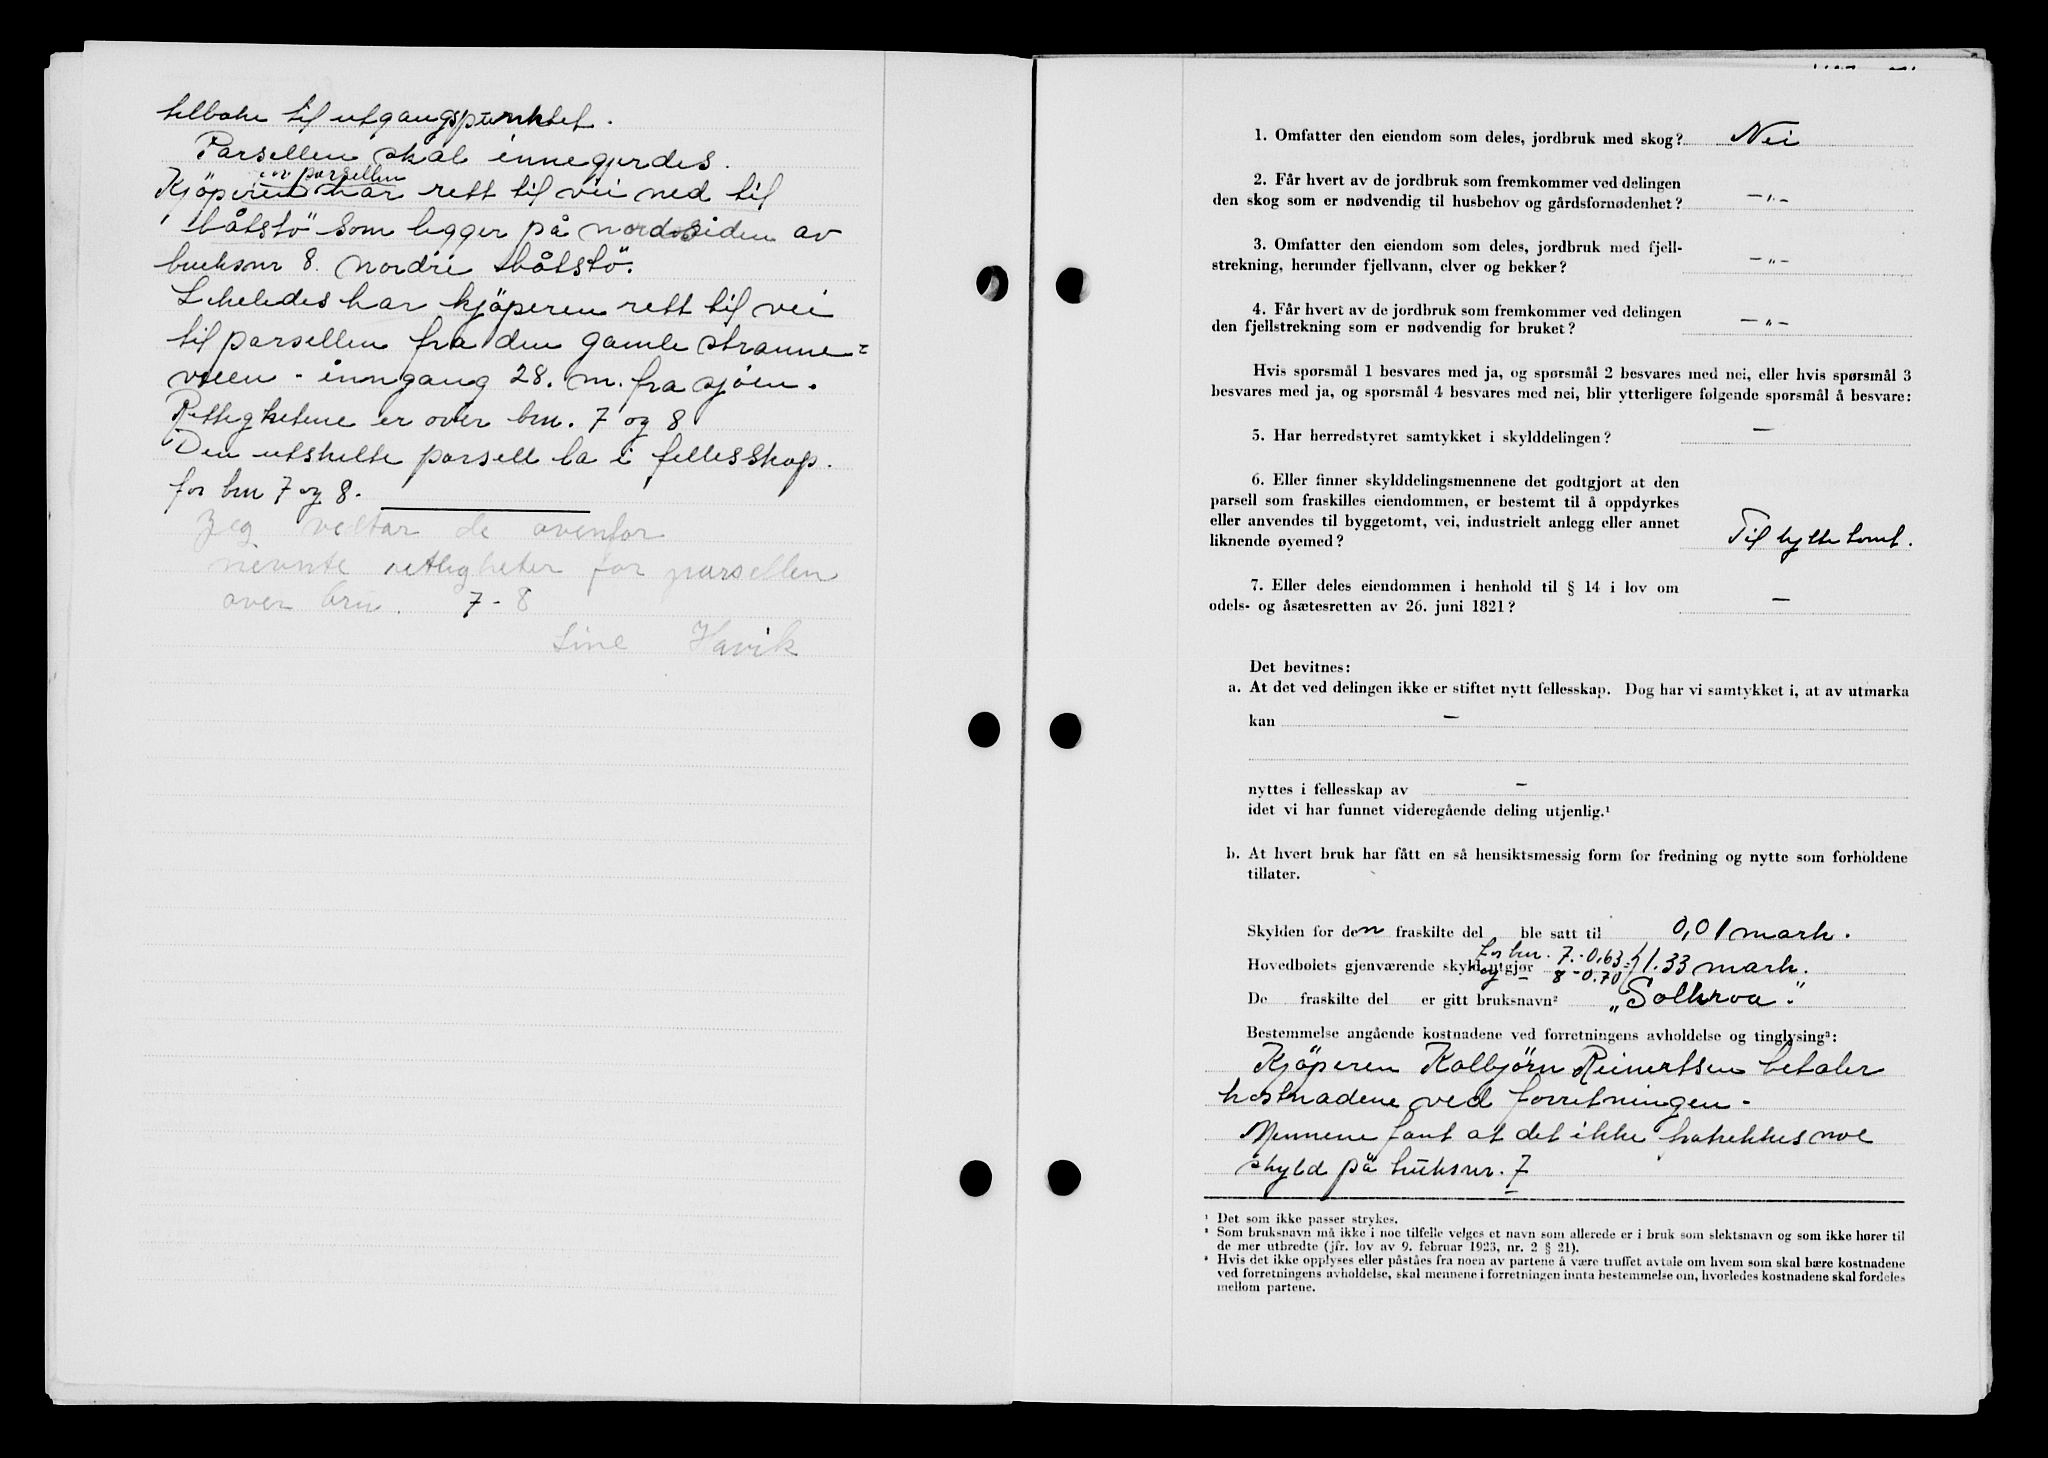 tilbake til utgangspunktet.
Parsellen skal innegjerdes.
av parsellen
Kjöperen har rett til vei ned til
båtstö som ligger på nordsiden av
bruksnr 8. nordre båtstö.
Likeledes har kjöperen rett til vei
til parsellen fra den gamle stranne=
veien - inngang 28. m. fra sjöen.
Rettighetene er over bnr. 7 og 8
Den utskilte parsell la i fellesskap.
for bnr 7 og 8.
Jeg vedtar de ovenfor
nevnte rettigheter for parsellen
over bnr. 7-8
Line Havik
1. Omfatter den eiendom som deles, jordbruk med skog? Nei
2. Får hvert av de jordbruk som fremkommer ved delingen
den skog som er nødvendig til husbehov og gårdsfornødenhet? -"-
3. Omfatter den eiendom som deles, jordbruk med fjell-
strekning, herunder fjellvann, elver og bekker? -"-
4. Får hvert av de jordbruk som fremkommer ved delingen
den fjellstrekning som er nødvendig for bruket? -"-
Hvis spørsmål 1 besvares med ja, og spørsmål 2 besvares med nei, eller hvis spørsmål 3
besvares med ja, og spørsmål 4 besvares med nei, blir ytterligere følgende spørsmål å besvare:
5. Har herredstyret samtykket i skylddelingen? -
6. Eller finner skylddelingsmennene det godtgjort at den
parsell som fraskilles eiendommen, er bestemt til å oppdyrkes
eller anvendes til byggetomt, vei, industrielt anlegg eller annet
liknende øyemed? Til hyttetomt.
7. Eller deles eiendommen i henhold til § 14 i lov om
odels- og åsætesretten av 26. juni 1821? -
Det bevitnes:
a. At det ved delingen ikke er stiftet nytt fellesskap. Dog har vi samtykket i, at av utmarka
kan -
nyttes i fellesskap av -
idet vi har funnet videregående deling utjenlig.¹
b. At hvert bruk har fått en så hensiktsmessig form for fredning og nytte som forholdene
tillater.
Skylden for den fraskilte del ble satt til 0,01 mark.
for bnr. 7.-0,63
Hovedbølets gjenværende skyld utgjør = 1.33 mark.
og 8-0.70
De fraskilte del er gitt bruksnavn² "Solkroa".
Bestemmelse angående kostnadene ved forretningens avholdelse og tinglysing³:
Kjöperen Kolbjörn Reinertsen betaler
kostnadene ved forretningen -
Mennene fant at det ikke fratrekkes noe
skyld på bruksnr. 7
¹ Det som ikke passer strykes.
² Som bruksnavn må ikke i noe tilfelle velges et navn som allerede er i bruk som slektsnavn og som ikke hører til
de mer utbredte (jfr. lov av 9. februar 1923, nr. 2 § 21).
³ Hvis det ikke opplyses eller påståes fra noen av partene å være truffet avtale om hvem som skal bære kostnadene
ved forretningens avholdelse, skal mennene i forretningen innta bestemmelse om, hvorledes kostnadene skal fordeles
mellom partene.